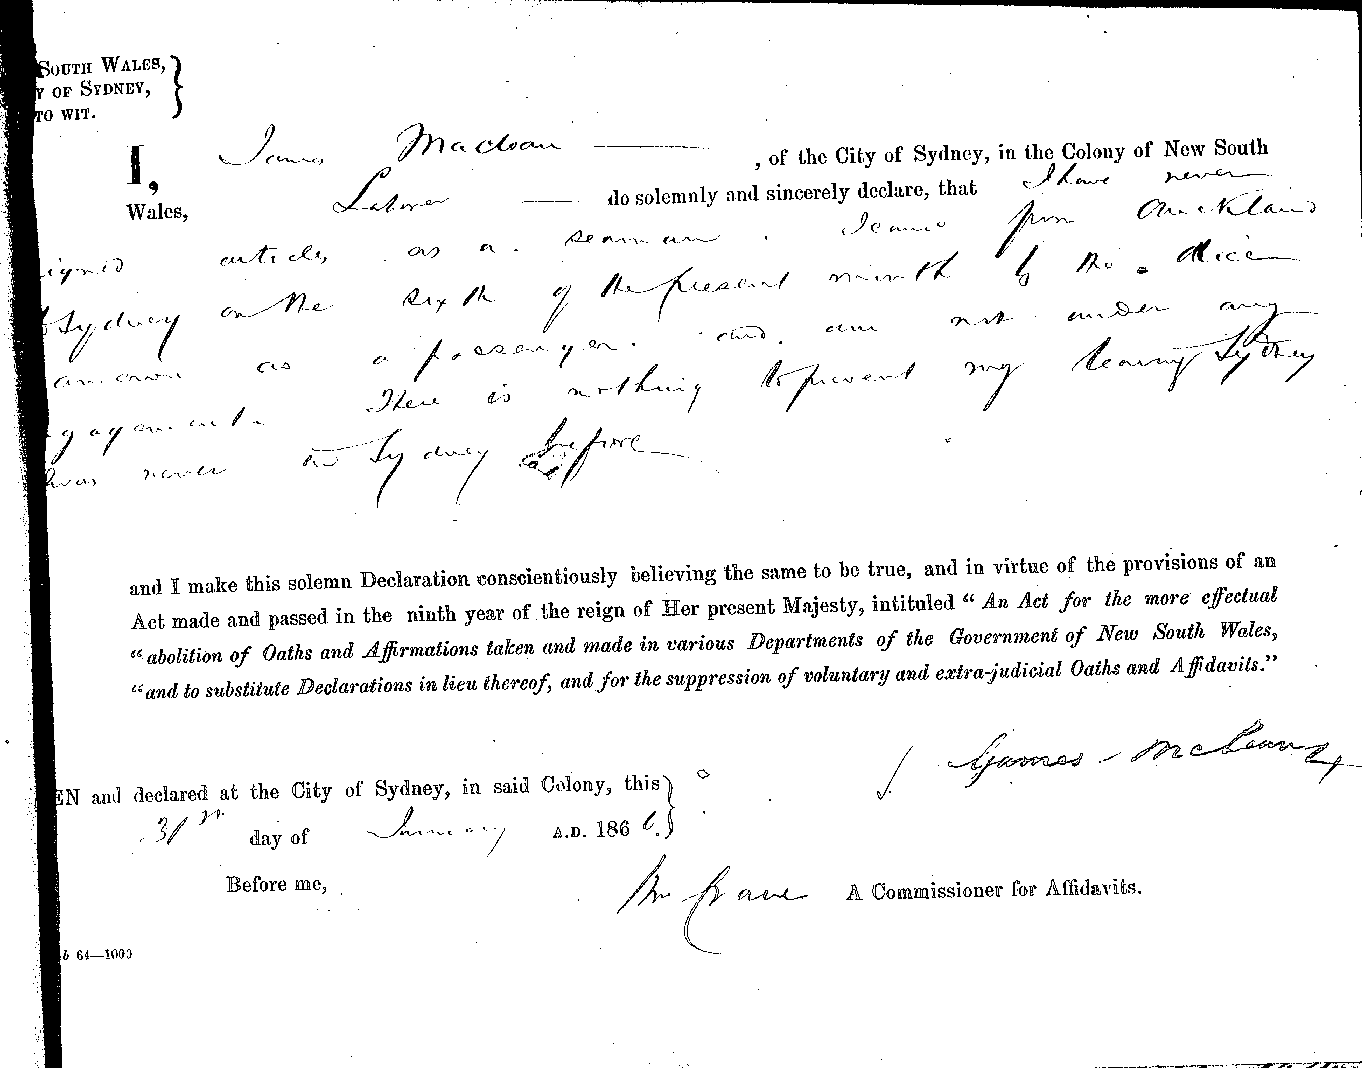 SOUTH WALES,
Y OF SYDNEY,
TO WIT.
I, James Maclean , of the City of Sydney, in the Colony of New South
Wales, Laborer do solemnly and sincerely declare, that I have never
igned articles as a seaman. I came from Auckland
to Sydney on the sixth of the present month by the Alice
Cameron as a passenger. and am not under any
ngagement. There is nothing to prevent my leaving Sydney
was never in Sydney before
and I make this solemn Declaration conscientiously believing the same to be true, and in virtue of the provisions of an
Act made and passed in the ninth year of the reign of Her present Majesty, intituled “ An Act for the more effectual
“ abolition of Oaths and Affirmations taken and made in various Departments of the Government of New South Wales,
“ and to substitute Declarations in lieu thereof, and for the suppression of voluntary and extra-judicial Oaths and Affidavits.”
James McLean
EN and declared at the City of Sydney, in said Colony, this
31st day of January A.D. 1866.
Before me,
Wm Crane A Commissioner for Affidavits.
b 64—1000